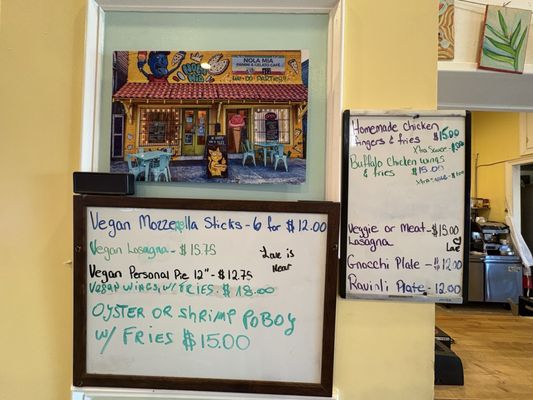 NOLA MIA
PANINI & GELATO CAFE
NOLA
MIA
WE DO PARTIES!!
Vegan Mozzerella Sticks - 6 for $12.00
Vegan Lasagna - $15.75
Love is
Near
Vegan Personal Pie 12" - $12.75
VEGAN WINGS, W/ FRIES. $18.00
OYSTER OR SHRIMP POBOY
W/ FRIES $15.00
Homemade Chicken
fingers & fries $15.00
Xtra Sauce
Buffalo Chicken Wings
& fries $15.00
Veggie or Meat - $15.00
Lasagna
Gnocchi Plate - $12.00
Ravioli Plate - 12.00